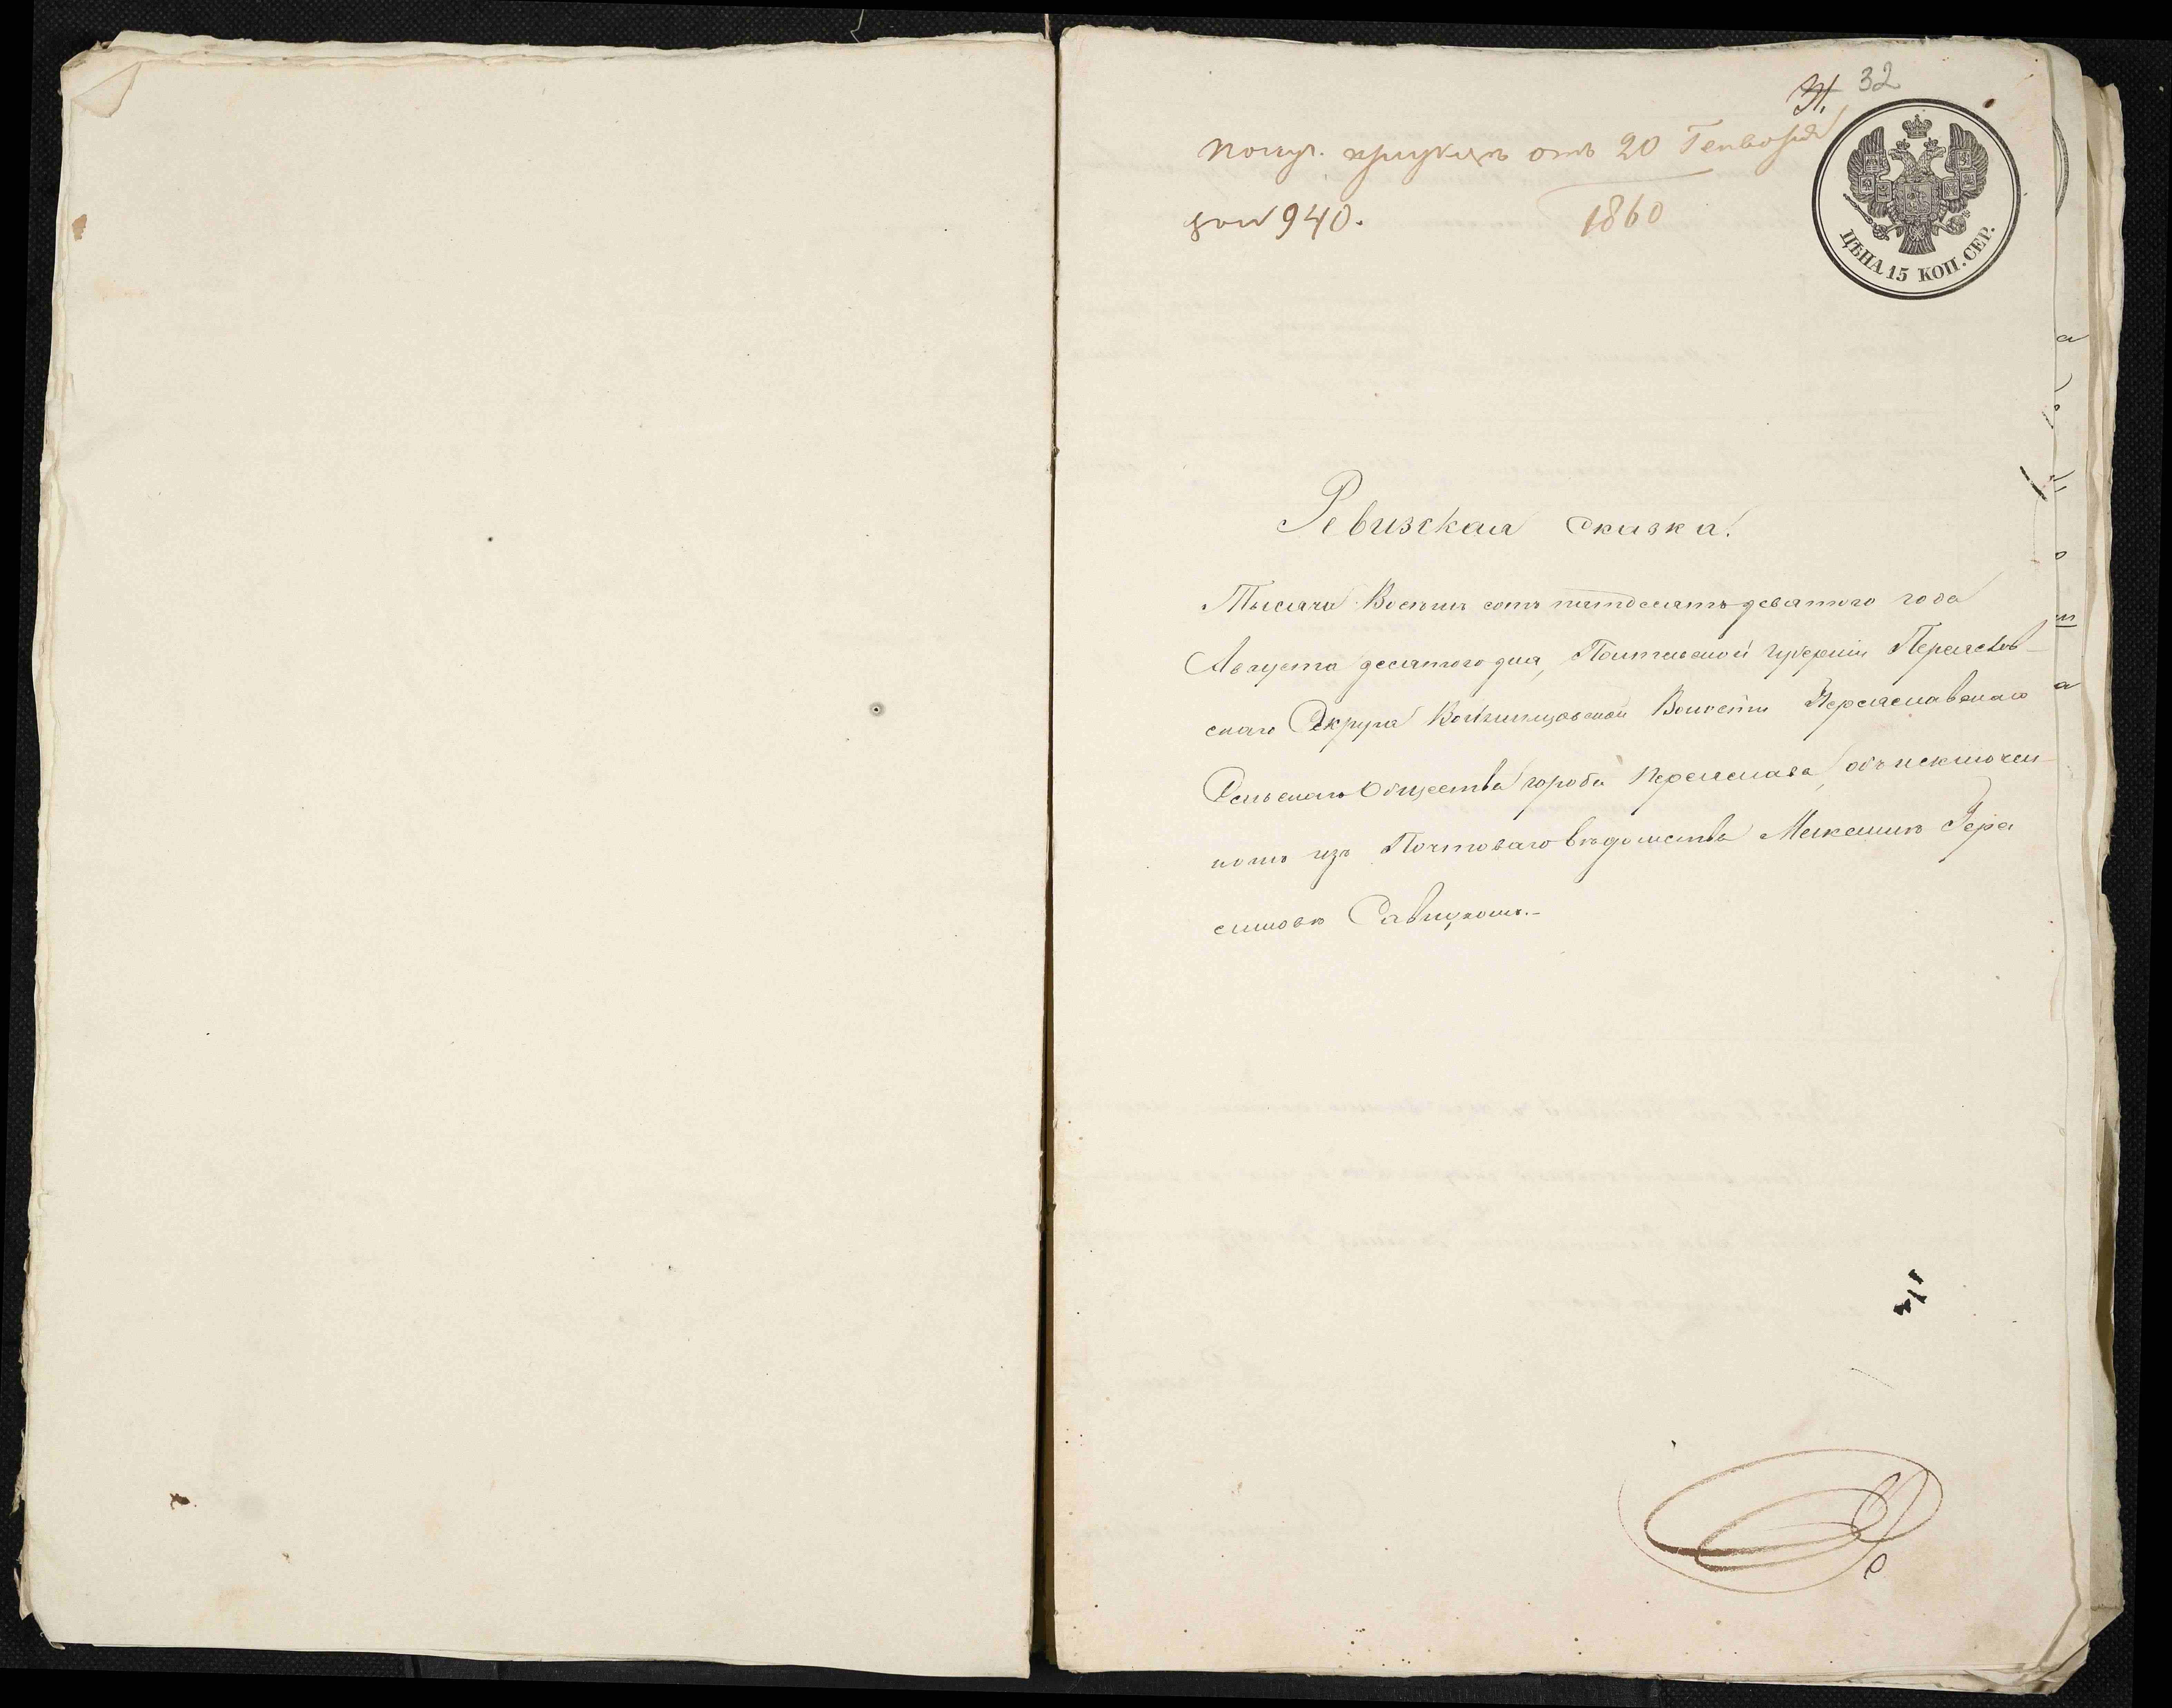 31. 32
отъ 20 Генворя
1860
940.
ЦѢНА 15 КОП. СЕР.
Ревизская сказка.
Тысяча Восемь сотъ пятьдесятъ девятого года
Августа десятого дня, Полтавской губерніи Переяслов-
скаго Округа Волости Переяславскаго
Сельскаго Общества города Переяслава, объ исключен-
номъ изъ Почтоваго вѣдомства Максимѣ Гера
симовѣ Савицкомъ.-